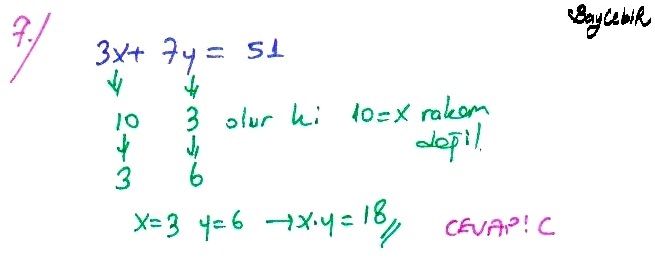 BayCebiR
7.
3x+ 7y = 51
10 3 olur ki 10=x rakam
değil.
3 6
x=3 y=6 →x.y=18//
CEVAP: C